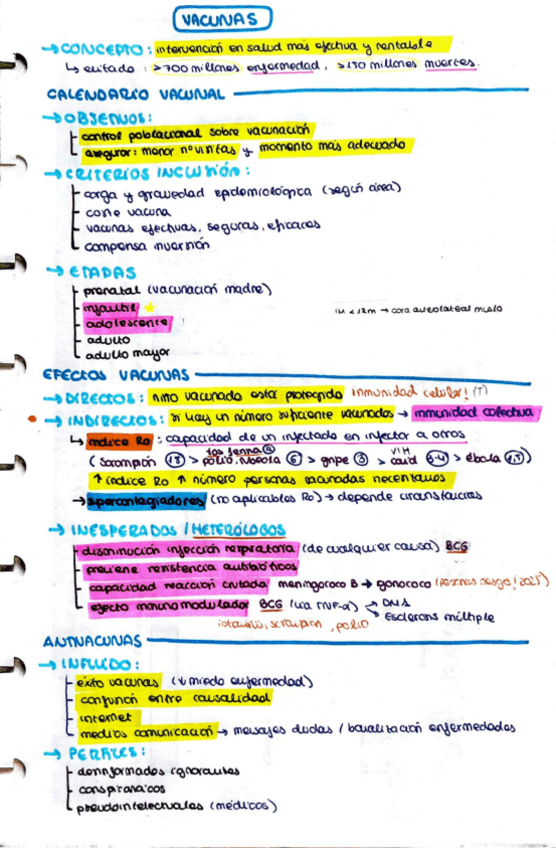 VACUNAS
→ CONCEPTO: intervención en salud más efectiva y rentable
↳ evitado: >700 millones enfermedad, >150 millones muertes.
CALENDARIO VACUNAL
→ OBJETIVOS:
control poblacional sobre vacunación
asegurar: menor nº visitas y momento más adecuado
→ CRITERIOS INCLUSIÓN:
carga y gravedad epidemiológica (según área)
coste vacuna
vacunas efectivas, seguras, eficaces
compensa inversión
→ ETAPAS
prenatal (vacunación madre)
infantil ★
IM < 12m → cara anterolateral muslo
adolescente
adulto
adulto mayor
EFECTOS VACUNAS
→ DIRECTOS: niño vacunado está protegido inmunidad celular! (T)
→ INDIRECTOS: si hay un número suficiente vacunados → inmunidad colectiva
↳ índice Ro: capacidad de un infectado en infectar a otros
(sarampión 18 > polio, rubeola 6 > gripe 3 > VIH covid 2-4 > ébola)
↑ índice Ro ↑ número personas vacunadas necesarias
→ supercontagiadores (no aplicables Ro) → depende circunstancias
→ INESPERADOS / HETERÓLOGOS
disminución infección respiratoria (de cualquier causa) BCG
previene resistencia antibióticos
capacidad reacción cruzada meningococo B → gonococo (personas riesgo! 2025)
efecto inmunomodulador BCG (vía TNF-α) → DM1
→ Esclerosis múltiple
rotavirus, sarampión, polio
ANTIVACUNAS
→ INFLUIDO:
éxito vacunas (↓ miedo enfermedad)
conjunción entre causalidad
internet
medios comunicación → mensajes dudas / banalización enfermedades
→ PERFILES:
desinformados ignorantes
conspiranoicos
pseudointelectuales (médicos)